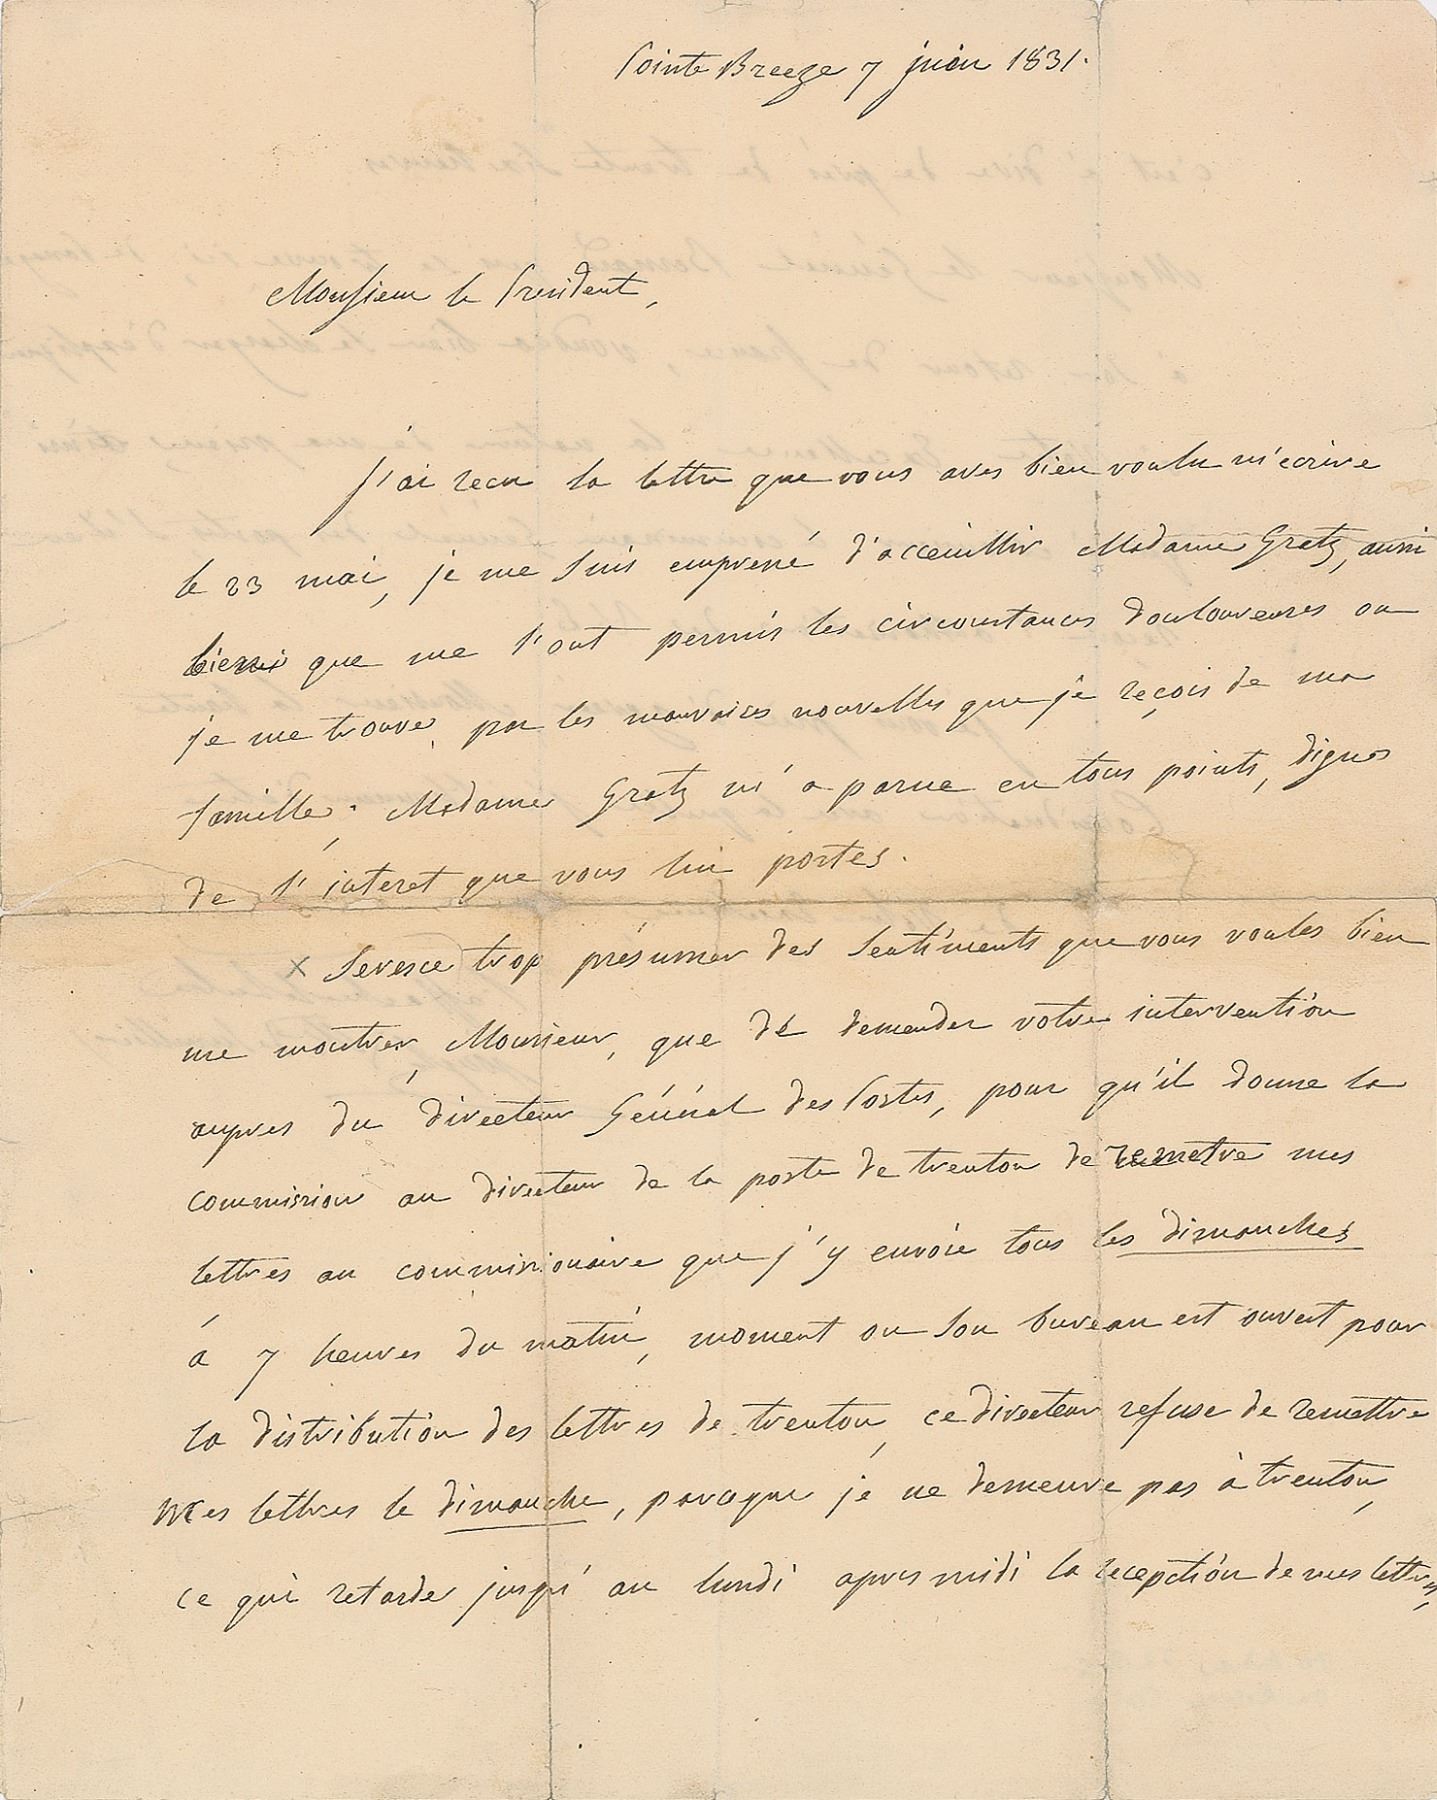 Pointe Breeze 7 juin 1831.
Monsieur le President,
J'ai recu la lettre que vous aves bien voulu m'ecrire
le 23 mai, je me suis empressé d'acceuillir Madame Gratz, aussi
bien que me l'ont permis les circonstances douloureuses ou
je me trouve, par les mauvaises nouvelles que je reçois de ma
famille; Madame Gratz m'a parue en tous points, digne
de l'interet que vous lui portes.
x Seresce trop présumer des sentiments que vous voules bien
me montrer, Monsieur, que de demander votre intervention
aupres du directeur Général des Postes, pour qu'il donne la
commission au directeur de la poste de trenton de remetre mes
lettres au commissionaire que j'y envoie tous les dimanches
à 7 heures du matin, moment ou son bureau est ouvert pour
la distribution des lettres de trenton, ce directeur refuse de remettre
mes lettres le dimanche, parceque je ne demeure pas à trenton,
ce qui retarde jusqu'au lundi apres midi la reception de mes lettres,